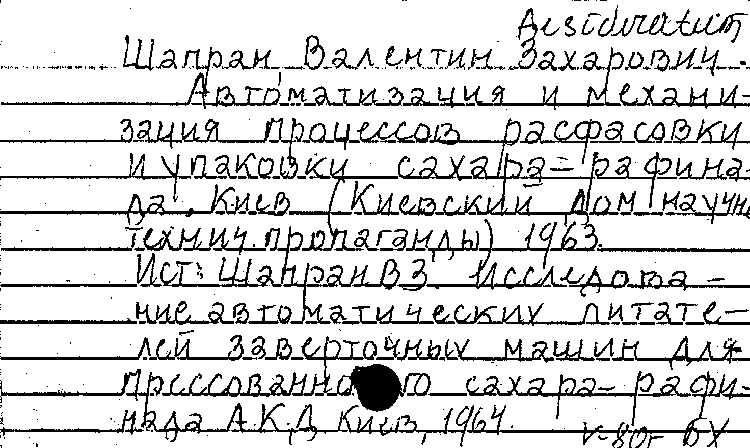 Desideratum
Шапран, Валентин Захарович.
Автоматизация и механи-
зация процессов расфасовки
и упаковки сахара-рафина-
да. Киев (Киевский дом научн.
технич. пропаганды) 1963.
Ист: Шапран В.З. Исследова-
ние автоматических питате-
лей заверточных машин для
прессованного сахара-рафи-
нада А.К.Д Киев, 1964.